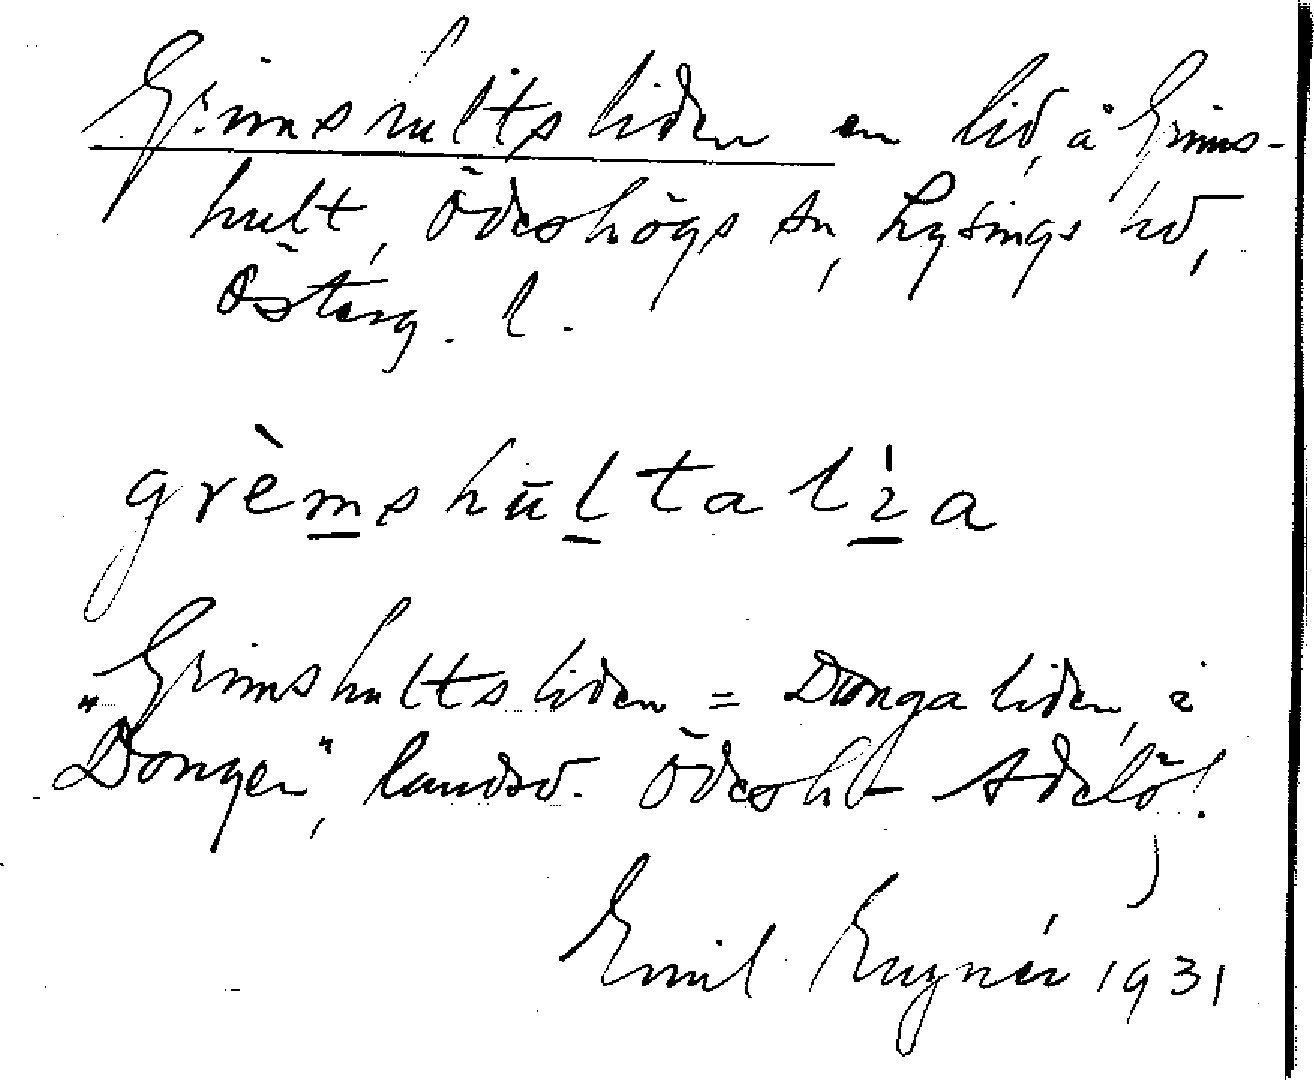 Grimshultsliden en lid, å Grims-
hult, Ödeshögs sn, Lysings hd,
Österg. l.
grèmshūltalı̍a
"Grimshultsliden = Dongaliden, i
Dongen", landsv. Ödesh - Adelöv.
Emil Engnér 1931